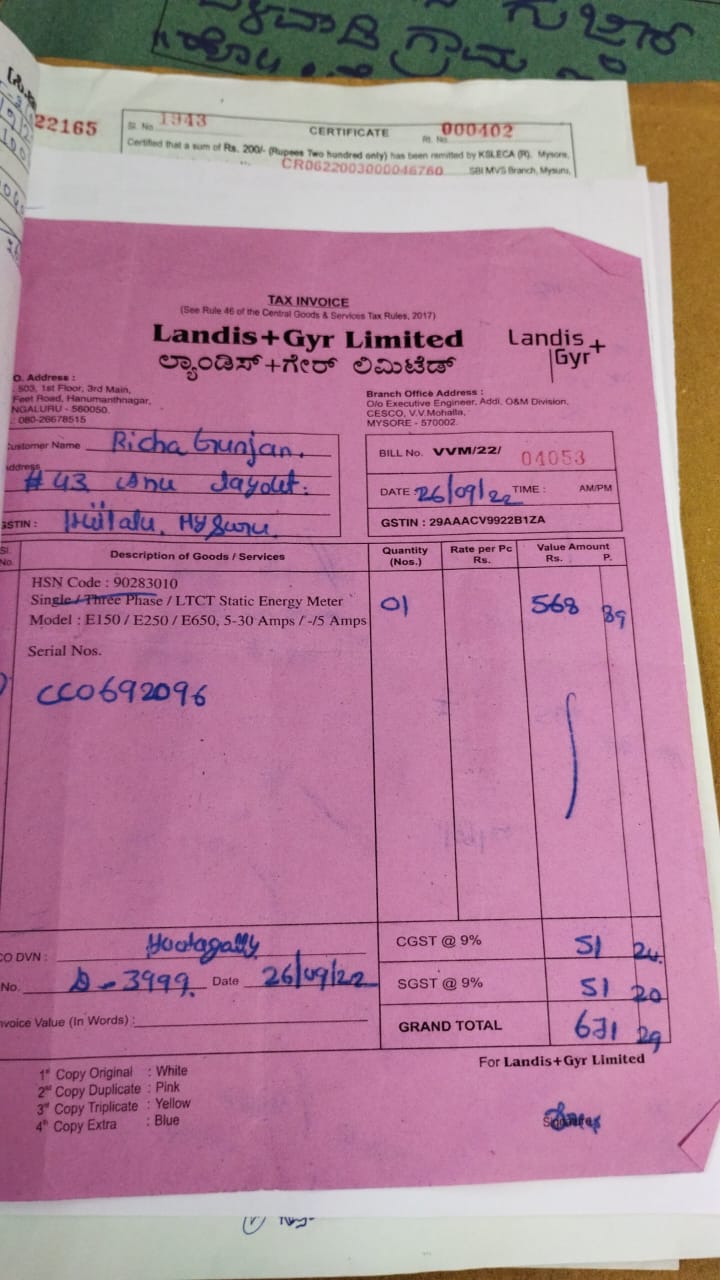 22165
Sl. No. 1943
CERTIFICATE
Rt. No. 000402
Certified that a sum of Rs. 200/- (Rupees Two hundred only) has been remitted by KSLECA (R), Mysore,
CR0622003000046760 SBI MVS Branch, Mysuru,
TAX INVOICE
(See Rule 46 of the Central Goods & Services Tax Rules, 2017)
Landis+Gyr Limited
Landis+
Gyr
ಲ್ಯಾಂಡಿಸ್+ಗೇರ್ ಲಿಮಿಟೆಡ್
O. Address :
503, 1st Floor, 3rd Main,
Feet Road, Hanumanthnagar,
NGALURU - 560050.
: 080-26678515
Branch Office Address :
O/o Executive Engineer, Addi. O&M Division,
CESCO, V.V.Mohalla,
MYSORE - 570002.
ustomer Name Richa Gunjan.
ddress # 43 Anu Layout.
GSTIN : Hiitalu, Mysuru
BILL No. VVM/22/ 04053
DATE : 26/09/22 TIME : AM/PM
GSTIN : 29AAACV9922B1ZA
Sl. No.
Description of Goods / Services
Quantity (Nos.)
Rate per Pc Rs.
Value Amount Rs. P.
HSN Code : 90283010
Single / Three Phase / LTCT Static Energy Meter
Model : E150 / E250 / E650, 5-30 Amps / -/5 Amps
01
568 89
Serial Nos.
CC0692096
CO DVN : Hootagally
No. D-3999. Date 26/09/22
nvoice Value (In Words) :
CGST @ 9% 51 20
SGST @ 9% 51 20
GRAND TOTAL 671 29
For Landis+Gyr Limited
1st Copy Original : White
2nd Copy Duplicate : Pink
3rd Copy Triplicate : Yellow
4th Copy Extra : Blue